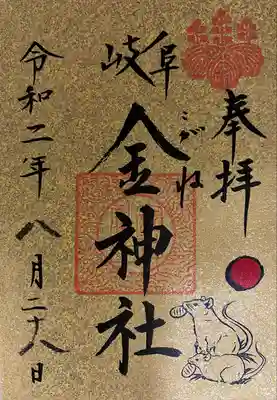 奉拝
岐阜
金神社
こがね
令和二年八月二十八日